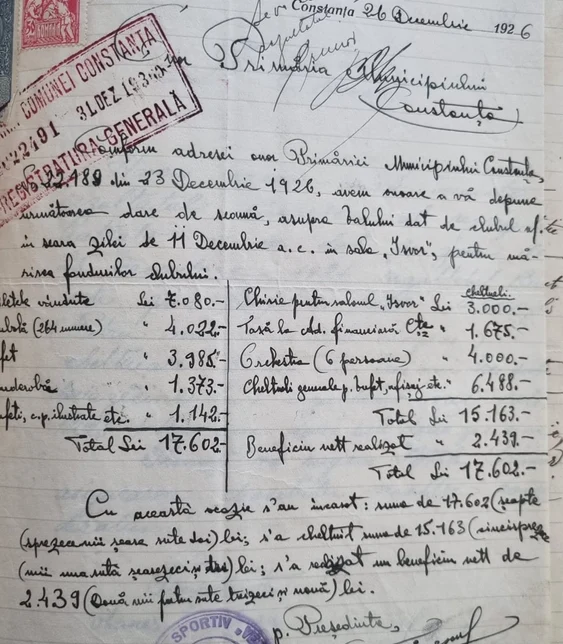 Constanța 26 Decembrie 1926
Primăria Municipiului
Constanța
COMUNEI CONSTANȚA
31.DEZ.193
REGISTRATURA GENERALĂ
Conform adresei onor Primăriei Municipiului Constanța,
22189 din 23 Decembrie 1926, avem onoare a vă depune
următoarea dare de seamă, asupra balului dat de clubul
în seara zilei de 11 Decembrie a.c. în sala „Isvor”, pentru mă-
rirea fondurilor clubului.
vândute Lei 7.080.-
(264 numere) " 4.022.-
" 3.985.-
" 1.373.-
c.p. ilustrate etc. " 1.142.-
Total Lei 17.602.-
cheltueli.
Chirie pentru salonul „Isvor” Lei 3.000.-
Taxă la Ad. financiară Cța 1.675.-
Orchestra (6 persoane) " 4.000.-
Cheltueli generale p. bufet, afișaj etc. " 6.488.-
Total Lei 15.163.-
Beneficiu nett realizat " 2.439.-
Total Lei 17.602.-
Cu această ocazie s'au încasat: suma de 17.602 (șapte
(sprezece mii șease sute doi) lei; s'a cheltuit suma de 15.163 (cincispreze
(mii una sută șeasezeci și trei) lei; s'a realizat un beneficiu nett de
2.439 (Două mii patru sute treizeci și nouă) lei.
p. Președinte,
SPORTIV